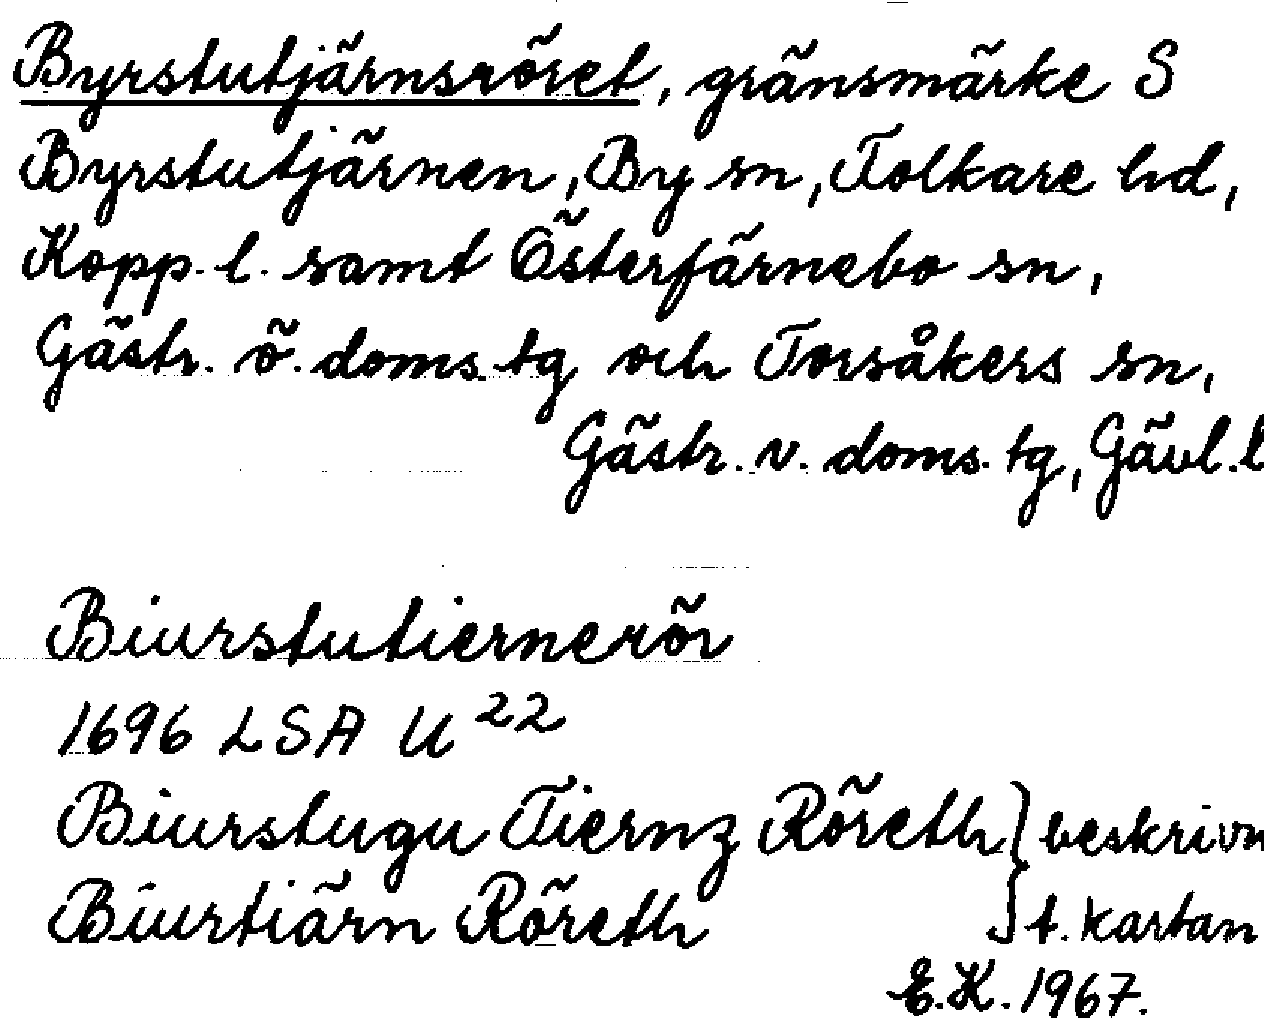 Byrstutjärnsröret, gränsmärke S
Byrstutjärnen, By sn, Folkare hd,
Kopp. l. samt Österfärnebo sn,
Gästr. ö. doms. tg och Torsåkers sn,
Gästr. v. doms. tg, Gävl. l
Biurstutiernerör
1696 LSA U 22
Biurstugu Tiernz Röreth } beskrivn
Biurtiärn Röreth t. kartan
E.K. 1967.